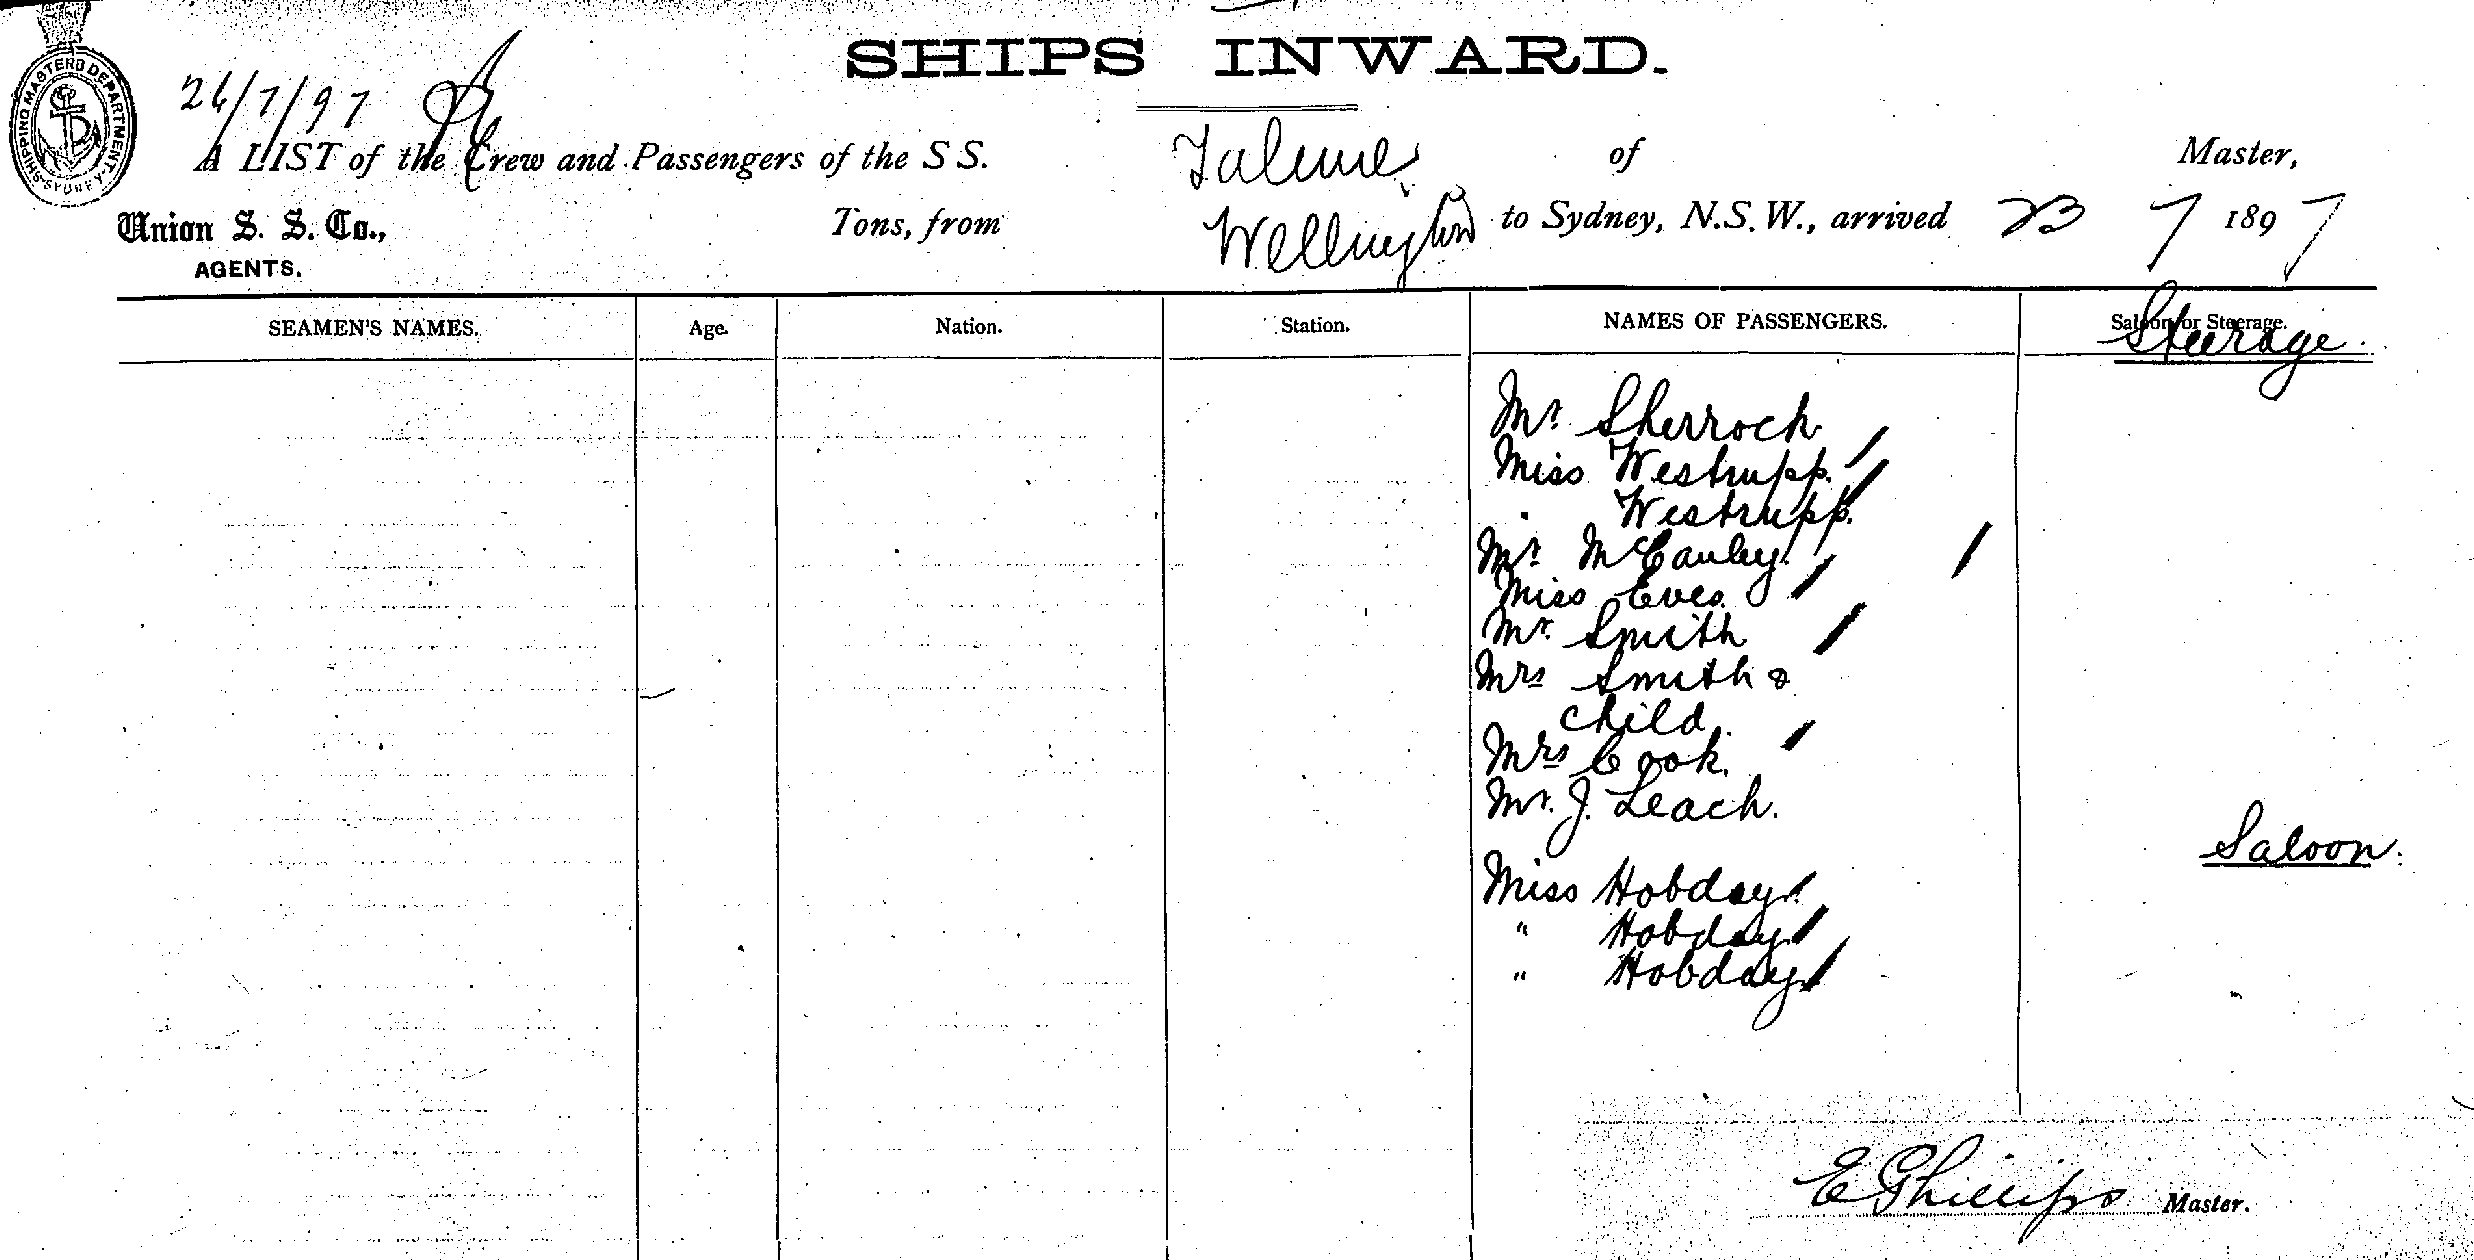 SHIPS INWARD.
SHIPPING MASTERS DEPARTMENT
SYDNEY
26/7/97
A LIST of the Crew and Passengers of the S S. Talune of Master,
Union S. S. Co.,
AGENTS.
Tons, from Wellington to Sydney, N.S.W., arrived 23 7 1897
SEAMEN'S NAMES. Age. Nation. Station. NAMES OF PASSENGERS. Saloon or Steerage.
Steerage.
Mr Sherrock
Miss Westrupp.
" Westrupp.
Mr McCauley.
Miss Eves.
Mr. Smith
Mrs Smith &
child.
Mrs Cook.
Mr. J. Leach.
Saloon.
Miss Hobday
" Hobday
" Hobday
E Phillips Master.